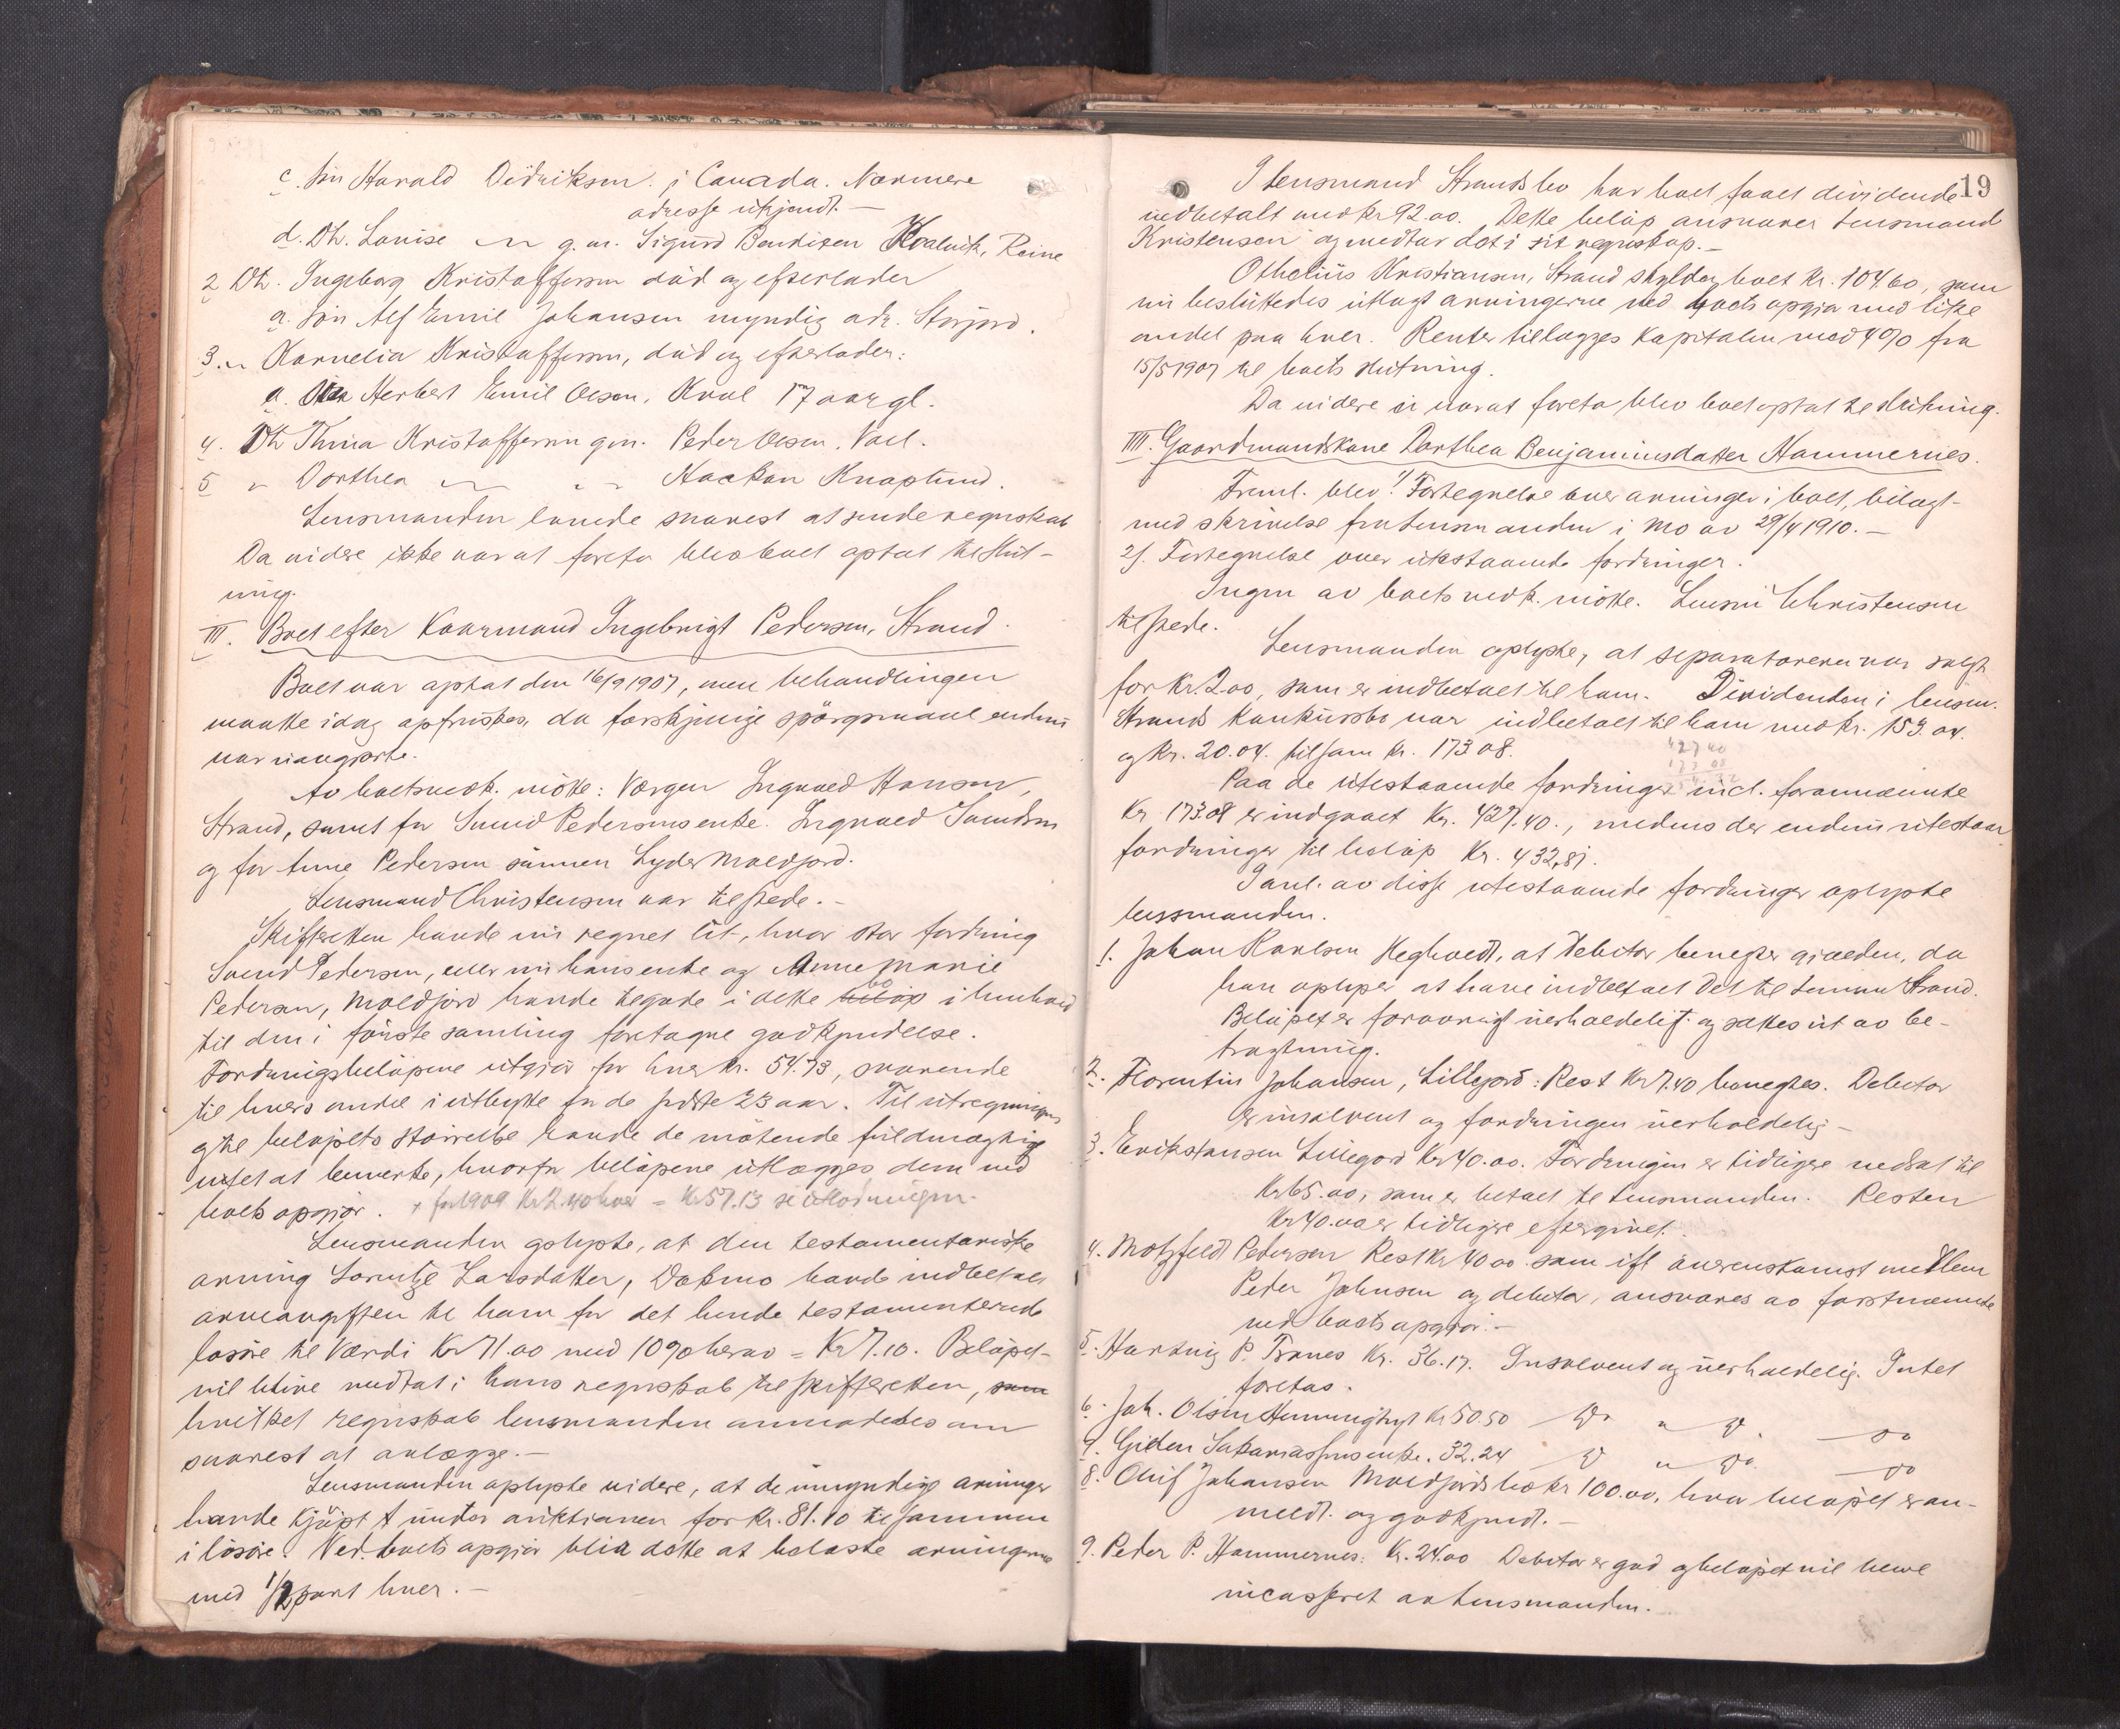 c. Søn Harald Didriksen i Canada. Nærmere
adresse ukjendt. —
d. Dtr. Lovise — g. m. Sigurd Bendixen Kvalvik, Reine
2 Dtr. Ingeborg Kristoffersen død og efterlader
a. Søn Alf Emil Johansen myndig adr. Storjord.
3. " Kornelia Kristoffersen, død og efterlader:
a. Herbert Emil Olsen, Kval 17 aar gl.
4. Dtr Trina Kristoffersen gm. Peder Olsen, Vael.
5 " Dorthea " " " Haakon Knaplund.
Lensmanden lovede snarest at sende regnskab
Da videre ikke var at foreta blev boet optat til slut-
ning.
III. Boet efter Kaarmand Ingebrigt Pedersen, Strand.
Boet var optat den 16/9 1907, men behandlingen
maatte idag opfriskes, da forskjellige spørgsmaal endnu
var uavgjorte.
Av boets vedk. møtte: Værgen Ingvald Hansen,
Strand, samt for Svend Pedersens enke. Ingvald Svendsen
og for Anne Pedersen sønnen Lyder Moldjord.
Lensmand Christensen var tilstede. —
Skifteretten havde nu regnet ut, hvor stor fordring
Svend Pedersen, eller nu hans enke og Anne Marie
bo
Pedersen, Moldjord havde tilgode i dette beløp i henhold
til den i første samling foretagne godkjendelse.
Fordringsbeløpene utgjør for hver kr. 54.73, svarende
til hvers andel i utbytte for de sidste 23 aar. Til utregningen
og til beløpets størrelse havde de møtende fuldmægtige
intet at bemerke, hvorfor beløpene utlægges dem ved
boets opgjør. + for 1909 Kr 2.40 hver = Kr 57.13 se utlodningen.
Lensmanden oplyste, at den testamentariske
arving Lorntze Larsdatter, Dokmo havde indbetalt
arveavgiften til ham for det hende testamenterede
løsøre til Værdi Kr 71.00 med 10% herav = Kr 7.10. Beløpet
vil blive medtat i hans regnskab til skifteretten, som
hvilket regnskab lensmanden anmodedes om
snarest at avlægge. —
Lensmanden oplyste videre, at de umyndige arvinger
havde kjøpt under auktionen for kr. 81.10 tilsammen
i løsøre. Ved boets opgjør blir dette at belaste arvingerne
med 1/2 part hver. —
19
I Lensmand Strands bo har boet faaet dividende
indbetalt med kr 92.00. Dette beløp ansvarer Lensmand
Kristensen og medtar det i sit regnskap. —
Othelius Kristiansen, Strand skylder boet kr. 104.60, som
nu besluttedes utlagt arvingerne ved boets opgjør med like
andel paa hver. Renter tillægges kapitalen med 4% fra
15/5 1907 til boets slutning.
Da videre ei var at foreta blev boet optat til slutning.
IIII. Gaardmandskone Dorthea Benjaminsdatter Hammernes.
Freml. blev 1/ Fortegnelse over arvinger i boet, bilagt
med skrivelse fra Lensmanden i Mo av 29/4 1910. —
2/. Fortegnelse over utestaaende fordringer.
Ingen av boets vedk. møtte. Lensm Christensen
tilstede.
Lensmanden oplyste, at separatoren var solgt
for kr. 2.00, som er indbetalt til ham. Dividenden i lensm.
Strands konkursbo var indbetalt til ham med kr. 153.04
og kr. 20.04. tilsam kr. 173 08.
427 40
173 08
Paa de utestaaende fordringer incl. forannævnte
Kr 173.08 er indgaaet Kr. 427.40., medens der endnu utestaar
fordringer til beløp Kr. 432,81.
I anl. av disse utestaaende fordringer oplyste
lensmanden.
1. Johan Karlsen Heghvedt, at Debitor benegter gjælden, da
han oplyser at have indbetalt det til Lensm Strand.
Beløpet er forøvrigt uerholdeligt og sættes ut av be-
tragtning.
2. Florentin Johansen, Lillejord: Rest Kr 7.40 benegtes. Debitor
er insolvent og fordringen uerholdelig —
3. Erik Hansen Lillegord Kr 40.00. Fordringen er tidligere nedsat til
Kr 65.00, som er betalt til Lensmanden. Resten
Kr 40.00 er tidligere eftergivet.
4. Motzfeldt Pedersen Rest Kr 40 00 som ifl. overenskomst mellem
Peder Johnsen og debitor, ansvares av førstnævnte
ved boets opgjør. —
5. Hartvig P. Tranes Kr. 36.17. Insolvent og uerholdelig. Intet
foretas.
6. Joh. Olsen Kr 50.50 do " do. — do
7. Giden Sakariassens enke. 32.24 do " do. — do
8. Oluf Johansen Moldjords bo kr 100.00, hvor beløpet er an-
meldt og godkjendt. —
9. Peder P. Hammernes: Kr. 24.00 Debitor er god og beløpet vil bli
incasseret av Lensmanden.